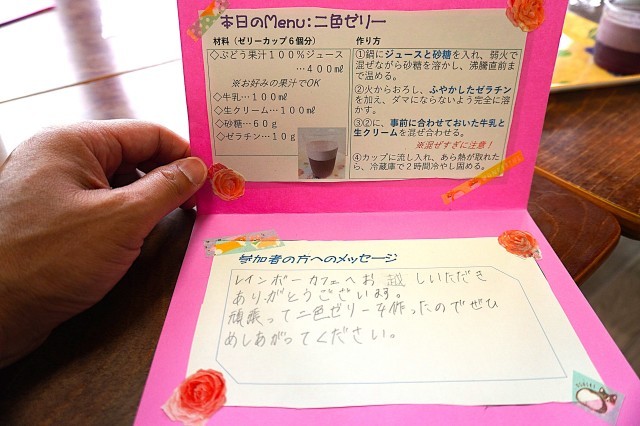 本日のMenu:二色ゼリー
材料(ゼリーカップ6個分)
◇ぶどう果汁100%ジュース
…400㎖
※お好みの果汁でOK
◇牛乳…100㎖
◇生クリーム…100㎖
◇砂糖…60g
◇ゼラチン…10g
作り方
①鍋にジュースと砂糖を入れ、弱火で
混ぜながら砂糖を溶かし、沸騰直前ま
で温める。
②火からおろし、ふやかしたゼラチン
を加え、ダマにならないよう完全に溶
かす。
③②に、事前に合わせておいた牛乳と
生クリームを混ぜ合わせる。
※混ぜすぎに注意!
④カップに流し入れ、あら熱が取れた
ら、冷蔵庫で2時間冷やし固める。
参加者の方へのメッセージ
レインボーカフェへお越しいただき
ありがとうございます。
頑張って二色ゼリーを作ったのでぜひ
めしあがってください。